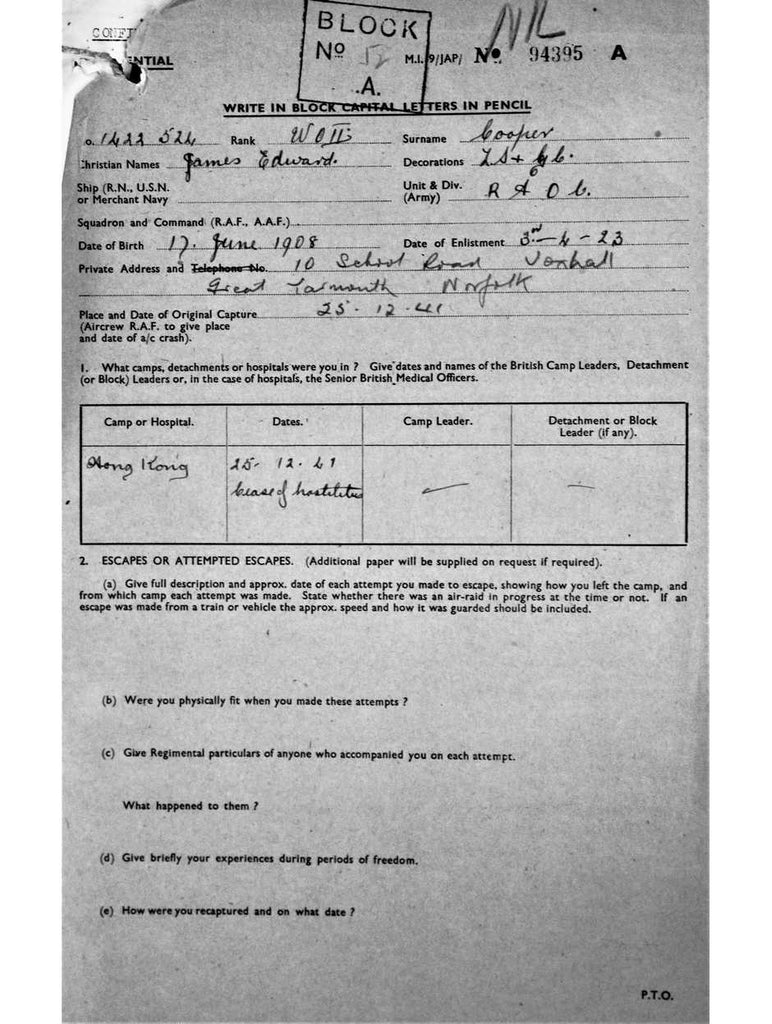 CONFI
ENTIAL
BLOCK
Nº 52
A.
NIL
M.I.9/JAP/ Nº 94395 A
WRITE IN BLOCK CAPITAL LETTERS IN PENCIL
o. 1422 524 Rank WOII Surname Cooper
Christian Names James Edward. Decorations LS & GC.
Ship (R.N., U.S.N. or Merchant Navy
Unit & Div. (Army) R A O C.
Squadron and Command (R.A.F., A.A.F.)
Date of Birth 17. June 1908 Date of Enlistment 3rd - 4 - 23
Private Address and Telephone No. 10 School Road Voxhall
Great Yarmouth Norfolk
Place and Date of Original Capture 25 . 12 . 41
(Aircrew R.A.F. to give place
and date of a/c crash).
1. What camps, detachments or hospitals were you in ? Give dates and names of the British Camp Leaders, Detachment
(or Block) Leaders or, in the case of hospitals, the Senior British Medical Officers.
Camp or Hospital. Dates. Camp Leader. Detachment or Block Leader (if any).
Hong Kong 25 - 12 . 41 — —
Cease of hostilities
2. ESCAPES OR ATTEMPTED ESCAPES. (Additional paper will be supplied on request if required).
(a) Give full description and approx. date of each attempt you made to escape, showing how you left the camp, and
from which camp each attempt was made. State whether there was an air-raid in progress at the time or not. If an
escape was made from a train or vehicle the approx. speed and how it was guarded should be included.
(b) Were you physically fit when you made these attempts ?
(c) Give Regimental particulars of anyone who accompanied you on each attempt.
What happened to them ?
(d) Give briefly your experiences during periods of freedom.
(e) How were you recaptured and on what date ?
P.T.O.